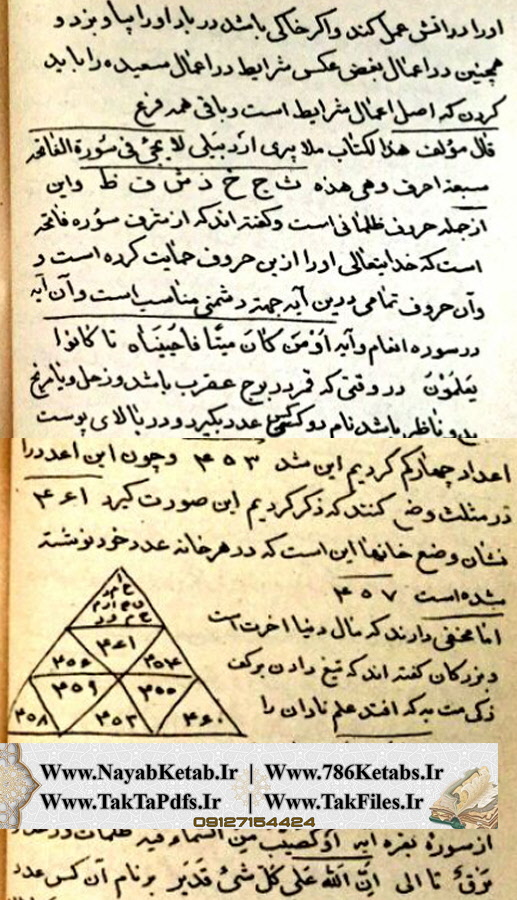 اورا در اتش عمل کند واکر خاکی باشد در باد اورا بیاویزد و
همچنین در اعمال بغض عکس شرایط در اعمال سعیده را باید
کردن که اصل اعمال شرایط است و باقی همه فرع
قال مؤلف هذا الکتاب ملا پری اردبیلی لا یجئ فی سورة الفاتحه
سبعة احرف وهی هذه ث ج خ ذ ش ف ظ واین
از جمله حروف ظلمانی است و کفته اند که از شرف سوره فاتحه
است که خدایتعالی اورا ازین حروف حمایت کرده است و
وآن حروف تمامی درین آیه جهة دشمنی مناسب است وآن آیه
در سوره انعام وآیه اَوَمَن کانَ میتًا فاحییناه تا کانوا
یعلمون در وقتی که قمر در برج عقرب باشد و زحل ویا مریخ
بدو ناظر باشد نام دو کس عدد بکیرد و در بالای پوست
اعداد جمله کردیم این شد ۴۵۳ وچون این اعدد را
در مثلث وضع کنند که ذکر کردیم این صورت کیرد ۴۶۱
نشان وضع خانها این است که در هر خانه عدد خود نوشته
شده است ۴۵۷
اما مخفی دارند که مال دنیا اخرت است
و بزرکان کفته اند که تیغ دادن بر کف
زنکی مست به که افتد علم نادان را
۴۶۱
۴۵۶ ۴۵۴
۴۵۹ ۴۵۵
۴۵۸ ۴۵۳ ۴۶۰
www.NayabKetab.Ir | www.786Ketabs.Ir
www.TakTaPdfs.Ir | www.TakFiles.Ir
09127154424
از سورهٔ بقره ایه اَوْ کَصَیِّبٍ مِنَ السَّماء فیه ظلمات ورعد و
بَرْقٌ تا الی اِنَّ الله عَلی کُلِّ شئٍ قَدیر بر نام آن کس عدد